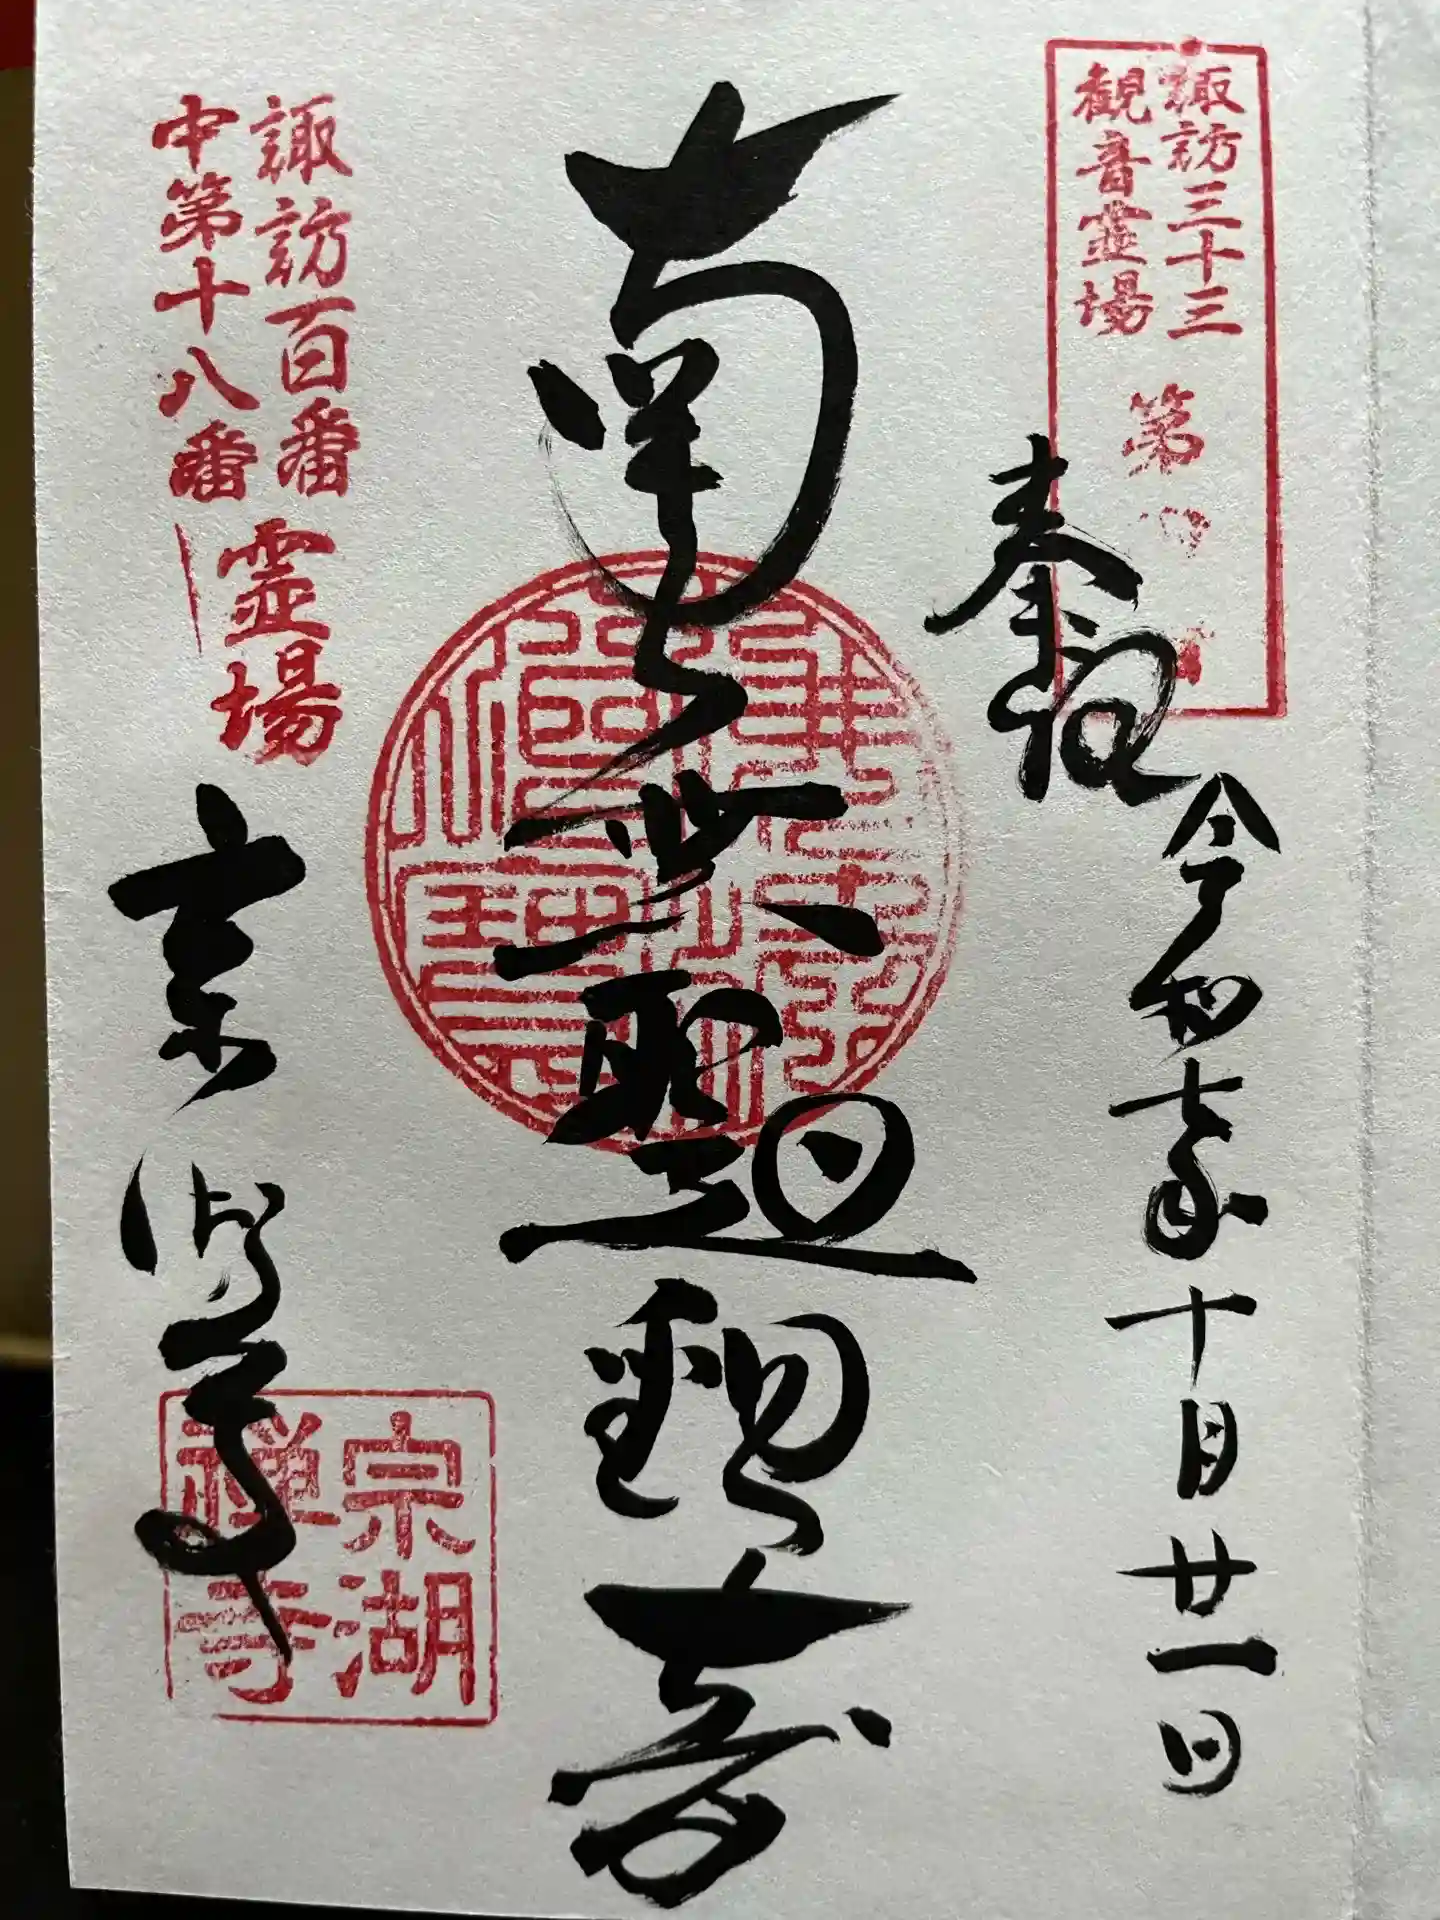 諏訪三十三
観音霊場
第
奉拝
令和七年十月廿一日
南無聖観音
諏訪百番
中第十八番
霊場
宗湖寺
宗湖
禅寺